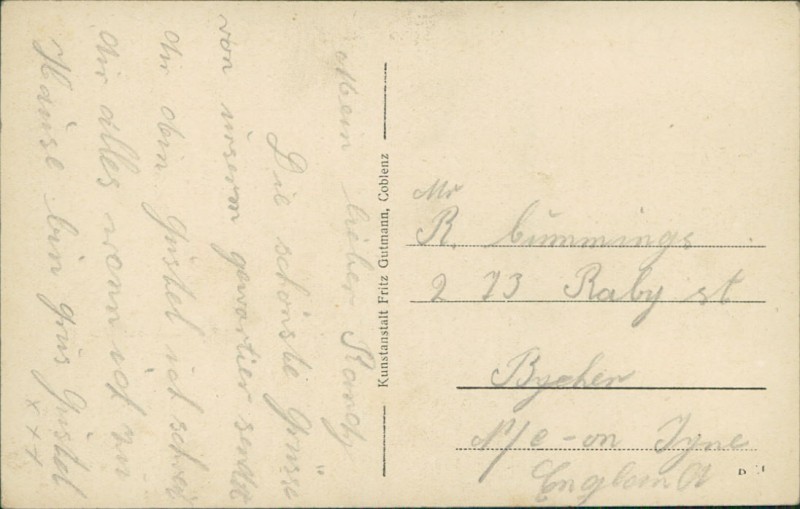 Mein lieber Randy
Die schönste Grüsse
von unserm gewartier sendet
dir dein Gustel ich schrei
dir alles wann ich zu
Hause bin grus Gustel
x x x
Kunstanstalt Fritz Gutmann, Coblenz
Mr
R. Cummings
273 Raby st
Bycher
N/C-on Tyne
England